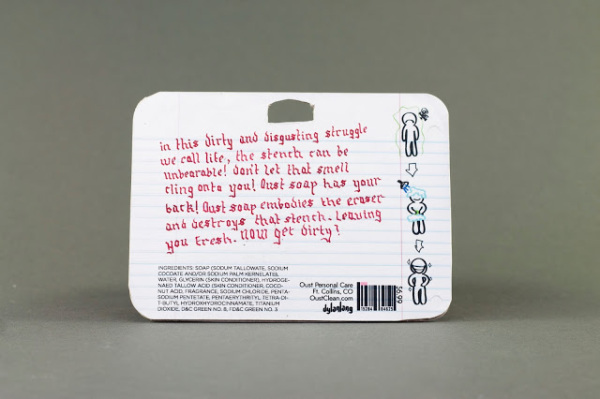 in this dirty and disgusting struggle
we call life, the stench can be
unbearable! Don't let that smell
cling onto you! Oust soap has your
back! Oust soap embodies the eraser
and destroys that stench. Leaving
you Fresh. NOW get dirty!
INGREDIENTS: SOAP (SODIUM TALLOWATE, SODIUM
COCOATE AND/OR SODIUM PALM KERNELATE),
WATER, GLYCERIN (SKIN CONDITIONER), HYDROGE-
NAED TALLOW ACID (SKIN CONDITIONER, COCO-
NUT ACID, FRAGRANCE, SODIUM CHLORIDE, PENTA-
SODIUM PENTETATE, PENTAERYTHRITYL TETRA-DI-
T-BUTYL HYDROXYHYDROCINNAMATE, TITANIUM
DIOXIDE, D&C GREEN NO. 8, FD&C GREEN NO. 3
Oust Personal Care
Ft. Collins, CO
OustClean.com
dylanlang
$6.99